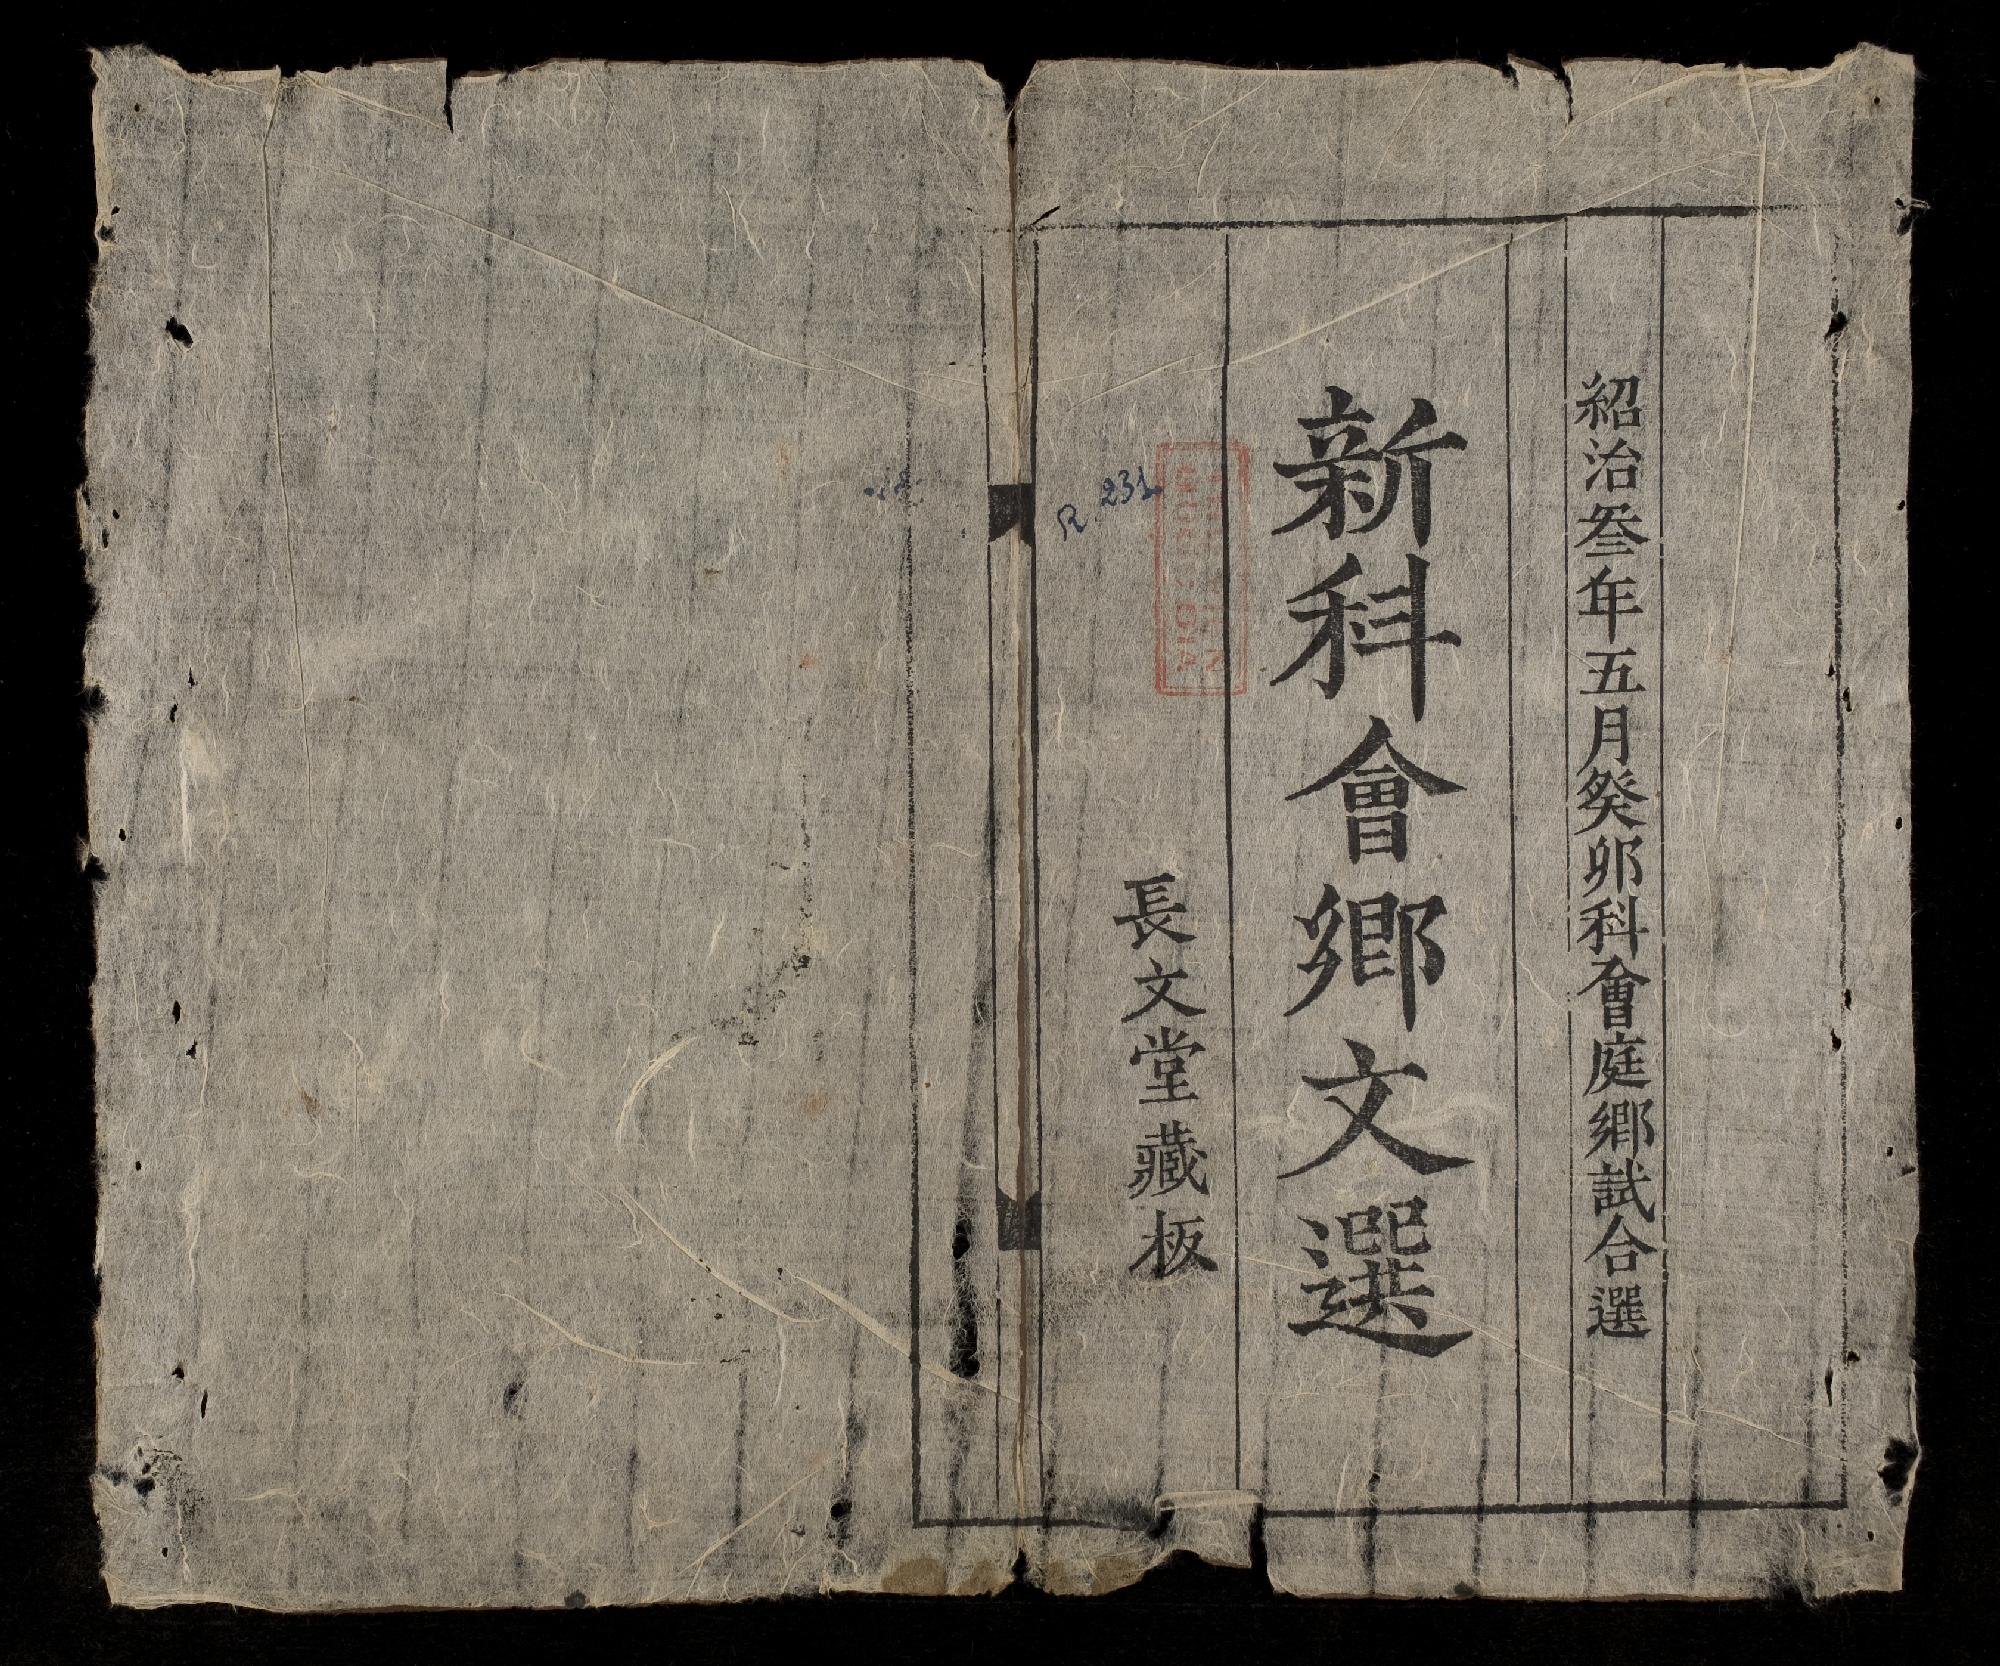 紹治叄年五月癸卯科會庭鄉試合選
新科會鄉文選
長文堂藏板
R. 231